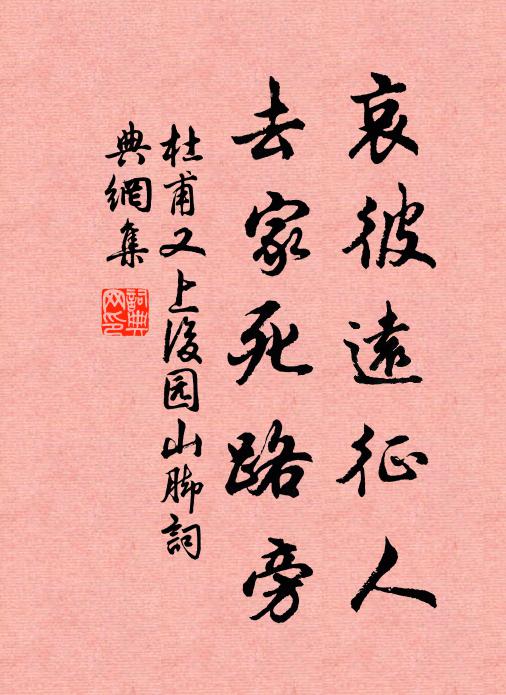 哀彼遠征人
去家死路旁
杜甫又上後园山脚詞
典網集
詞典
网印